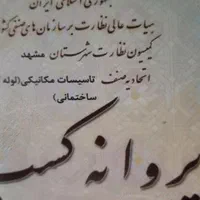 جمهوری اسلامی ایران
هیات عالی نظارت بر سازمان های صنفی کشور
کمیسیون نظارت شهرستان مشهد
اتحادیه صنف تاسیسات مکانیکی(لوله
ساختمانی)
پروانه کسب